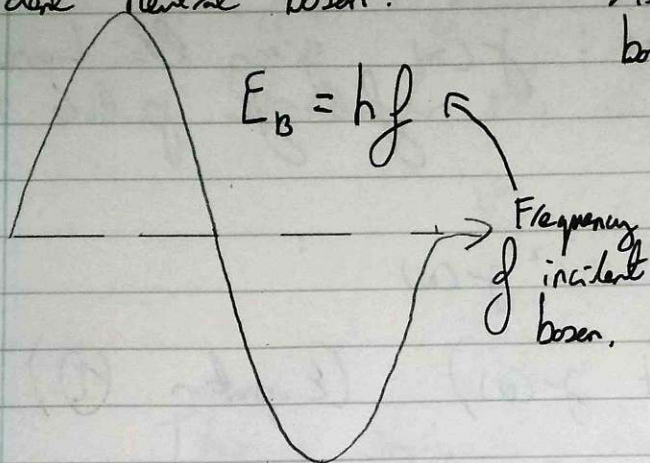 boson.
bo
E_B = hf
Frequency
of incident
boson.